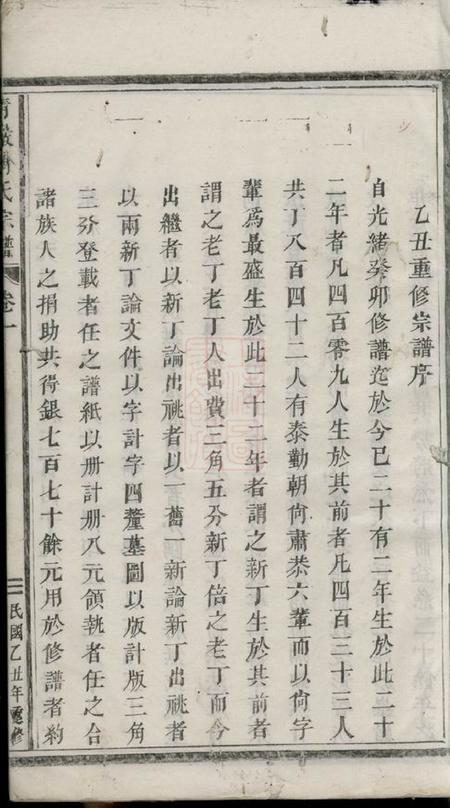 乙丑重修宗譜序
自光緒癸卯修譜迄於今已二十有二年生於此二十
二年者凡四百零九人生於其前者凡四百三十三人
共丁八百四十二人有泰勤朝尙肅恭六輩而以尙字
輩爲最盛生於此二十二年者謂之新丁生於其前者
謂之老丁老丁人出費三角五分新丁倍之老丁而今
出繼者以新丁論出祧者以一舊一新論新丁出祧者
以兩新丁論文件以字計字四釐墓圖以版計版三角
三分登載者任之譜紙以册計册八元領執者任之合
諸族人之捐助共得銀七百七十餘元用於修譜者約
氏宗譜
卷一
民國乙丑年重修